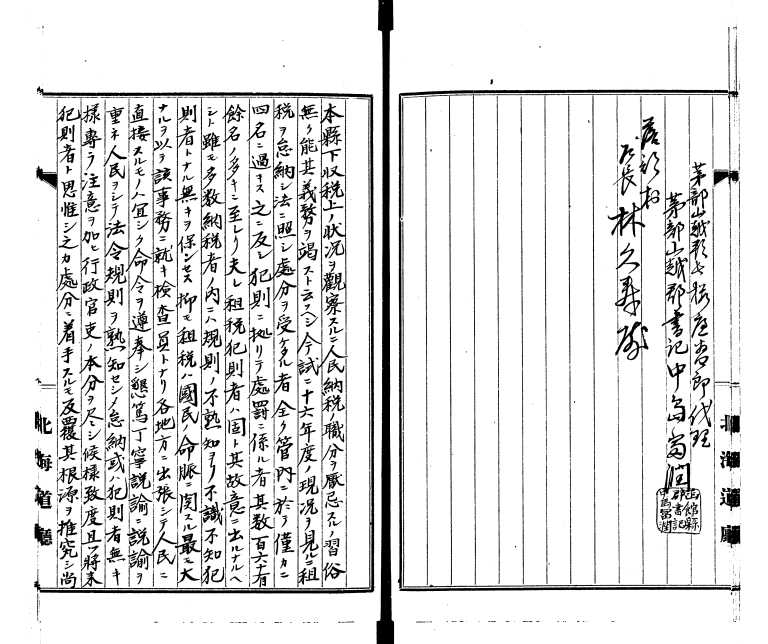 茅部山越郡長 代理
茅部山越郡書記中島富潤
函館縣
郡書記
中島富潤
落部村
戸長 林久壽殿
本縣下収税上ノ状况ヲ觀察スルニ人民納税ノ職分ヲ厭忌スルノ習俗
無ク能其義務ヲ竭スト云ヘシ今試ニ十六年度ノ現况ヲ見ルニ租
税ヲ怠納シ法ニ照シ處分ヲ受ケタル者全ク管内ニ於テ僅カニ
四名ニ過キス之ニ反シ犯則ニ拠リテ處罰ニ係ル者其数百六十有
餘名ノ多キニ至レリ夫レ租税犯則者ハ固ト其故意ニ出ルナルヘ
シト雖モ多数納税者ノ内ニハ規則ノ不熟知ヨリ不識不知犯
則者トナル無キヲ保ンセス抑モ租税ハ國民ノ命脈ニ関スル最モ大
ナルヲ以テ該事務ニ就キ検査員トナリ各地方ニ出張シテ人民ニ
直接スルモノハ宜シク命令ヲ遵奉シ懇篤丁寧説諭ニ説諭ヲ
重ネ人民ヲシテ法令規則ヲ熟知セシメ怠納或ハ犯則者無キ
様専ラ注意ヲ加ヒ行政官吏ノ本分ヲ尽シ候様致度且ツ将来
犯則者ト思惟シ之カ處分ニ着手スルモ反覆其根源ヲ推究シ尚
北海道廳